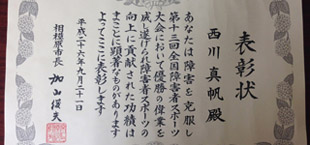 表彰状
西川真帆殿
あなたは障害を克服し
第十三回全国障害者スポーツ
大会において優勝の偉業を
成し遂げられ障害者スポーツの
向上に貢献された功績は
まことに顕著なものがあります
よってここに表彰します
平成二十六年九月二十一日
相模原市長 加山俊夫